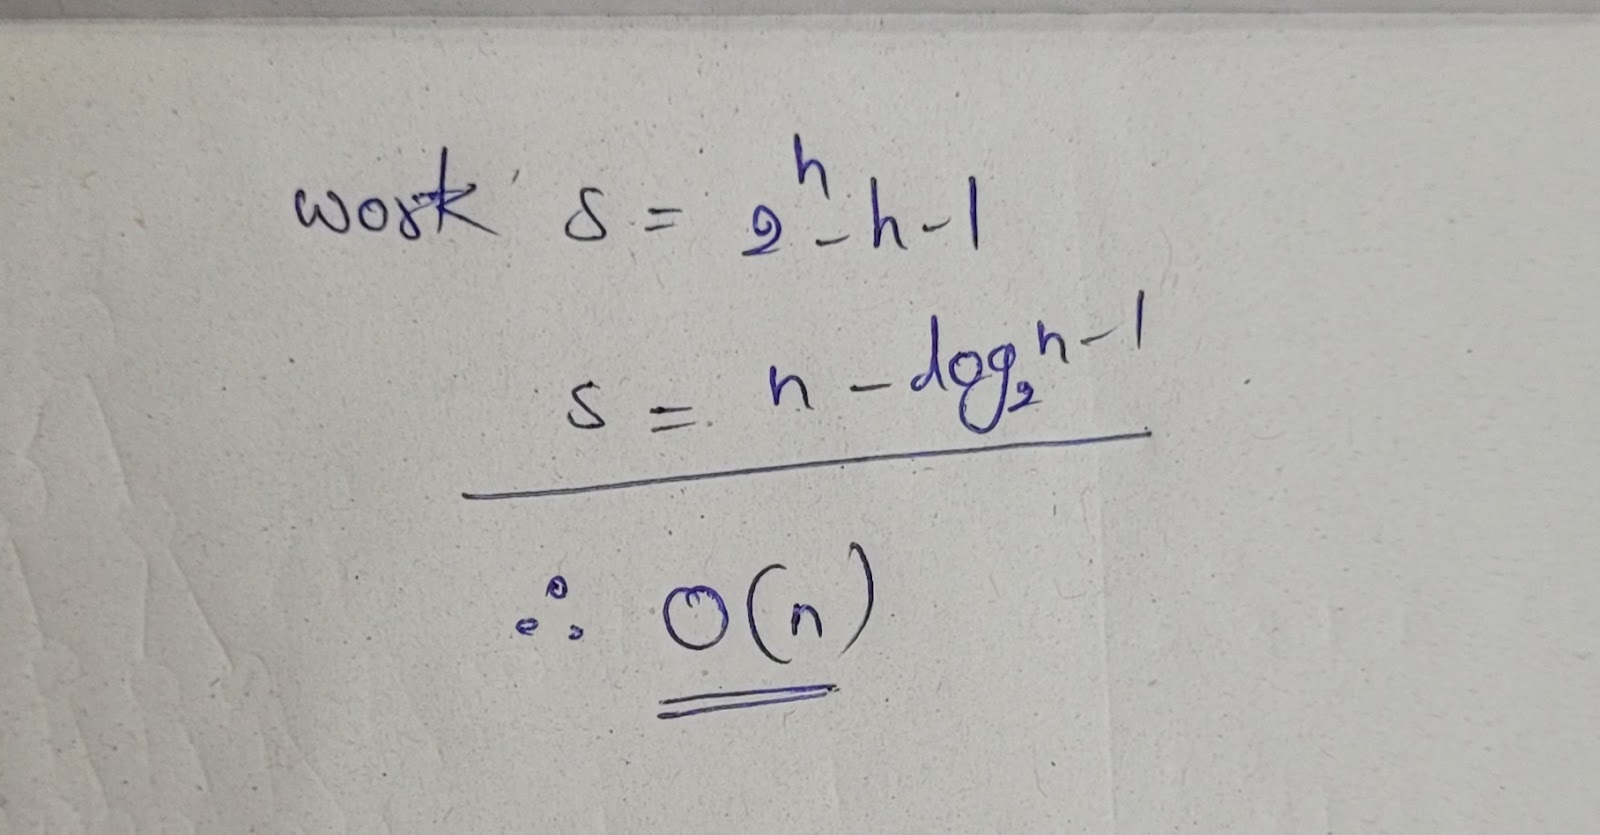 work S = 2^h - h - 1
S = n - log₂ n - 1
∴ O(n)